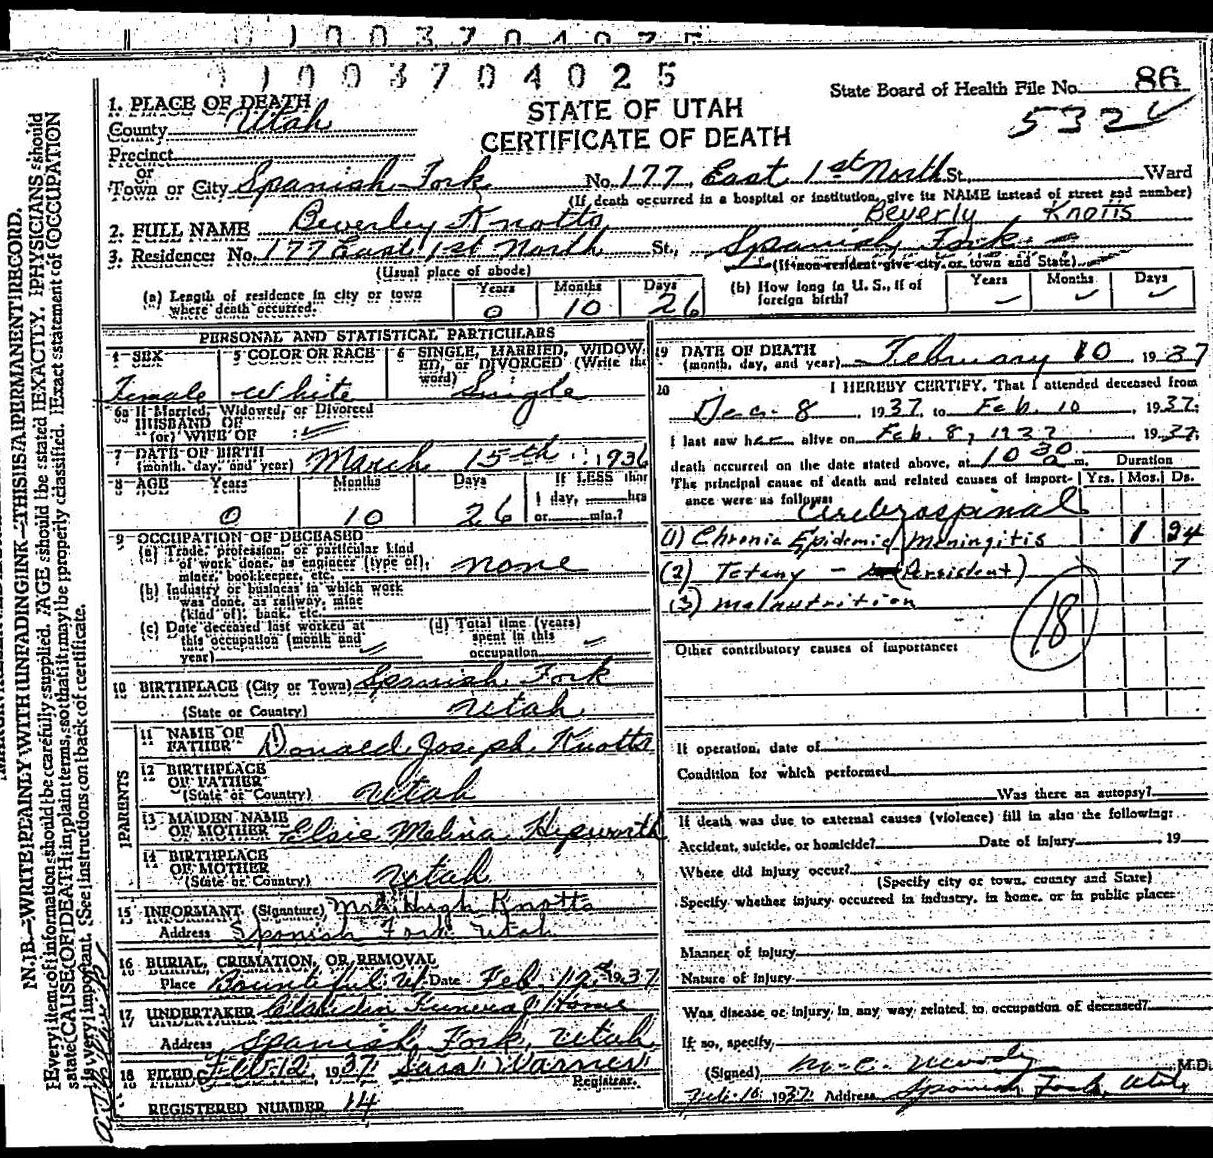 0 1 0 0 3 7 0 4 0 2 5
State Board of Health File No. 86
532
STATE OF UTAH
CERTIFICATE OF DEATH
1. PLACE OF DEATH
County Utah
Precinct
or
Town or City Spanish Fork No. 177 East 1st North St. Ward
(If death occurred in a hospital or institution, give its NAME instead of street and number)
2. FULL NAME Beverley Knotts Beverly Knotts
3. Residence: No. 177 East 1st North St., Spanish Fork
(Usual place of abode) (If non-resident give city or town and State)
(a) Length of residence in city or town where death occurred. Years 0 Months 10 Days 26
(b) How long in U. S., if of foreign birth? Years Months Days
PERSONAL AND STATISTICAL PARTICULARS
4 SEX Female
5 COLOR OR RACE White
6 SINGLE, MARRIED, WIDOWED, or DIVORCED (Write the word) Single
6a If Married, Widowed, or Divorced
HUSBAND OF
(or) WIFE OF
7 DATE OF BIRTH
(month, day, and year) March 15th 1936
8 AGE Years Months Days If LESS than
1 day, hrs
0 10 26 or min.?
9 OCCUPATION OF DECEASED
(a) Trade, profession, or particular kind
of work done, as engineer (type of),
miner, bookkeeper, etc. none
(b) Industry or business in which work
was done, as railway, mine
(kind of), bank, etc.
(c) Date deceased last worked at
this occupation (month and
year)
(d) Total time (years)
spent in this
occupation
10 BIRTHPLACE (City or Town) Spanish Fork
(State or Country) Utah
PARENTS
11 NAME OF
FATHER Donald Joseph Knotts
12 BIRTHPLACE
OF FATHER
(State or Country) Utah
13 MAIDEN NAME
OF MOTHER Elsie Melina Hepworth
14 BIRTHPLACE
OF MOTHER
(State or Country) Utah
15 INFORMANT (Signature) Mrs. Hugh Knotts
Address Spanish Fork Utah
16 BURIAL, CREMATION, OR REMOVAL
Place Bountiful, Ut Date Feb. 12 1937
17 UNDERTAKER Funeral Home
Address Spanish Fork, Utah
18 FILED Feb. 12, 1937 Sara Warner
Registrar.
REGISTERED NUMBER 14
19 DATE OF DEATH
(month, day, and year) February 10 1937
20 I HEREBY CERTIFY, That I attended deceased from
Dec. 8, 1937, to Feb. 10, 1937;
I last saw her alive on Feb. 8, 1937 1937;
death occurred on the date stated above, at 10 30 a m.
The principal cause of death and related causes of importance were as follows:
Duration
Yrs. Mos. Ds.
Cerebrospinal
(1) Chronic Epidemic Meningitis 1 24
(2) Tetany - (Persistent) 7
(3) malnutrition
18
Other contributory causes of importance:
If operation, date of
Condition for which performed
Was there an autopsy?
If death was due to external causes (violence) fill in also the following:
Accident, suicide, or homicide? Date of injury 19
Where did injury occur?
(Specify city or town, county and State)
Specify whether injury occurred in industry, in home, or in public place:
Manner of injury
Nature of injury
Was disease or injury in any way related to occupation of deceased?
If so, specify
(Signed) M.D.
Feb. 10 1937 Address Spanish Fork, Utah
N. B.—WRITE PLAINLY WITH UNFADING INK—THIS IS A PERMANENT RECORD.
Every item of information should be carefully supplied. AGE should be stated EXACTLY. PHYSICIANS should
state CAUSE OF DEATH in plain terms, so that it may be properly classified. Exact statement of OCCUPATION
is very important. See instructions on back of certificate.